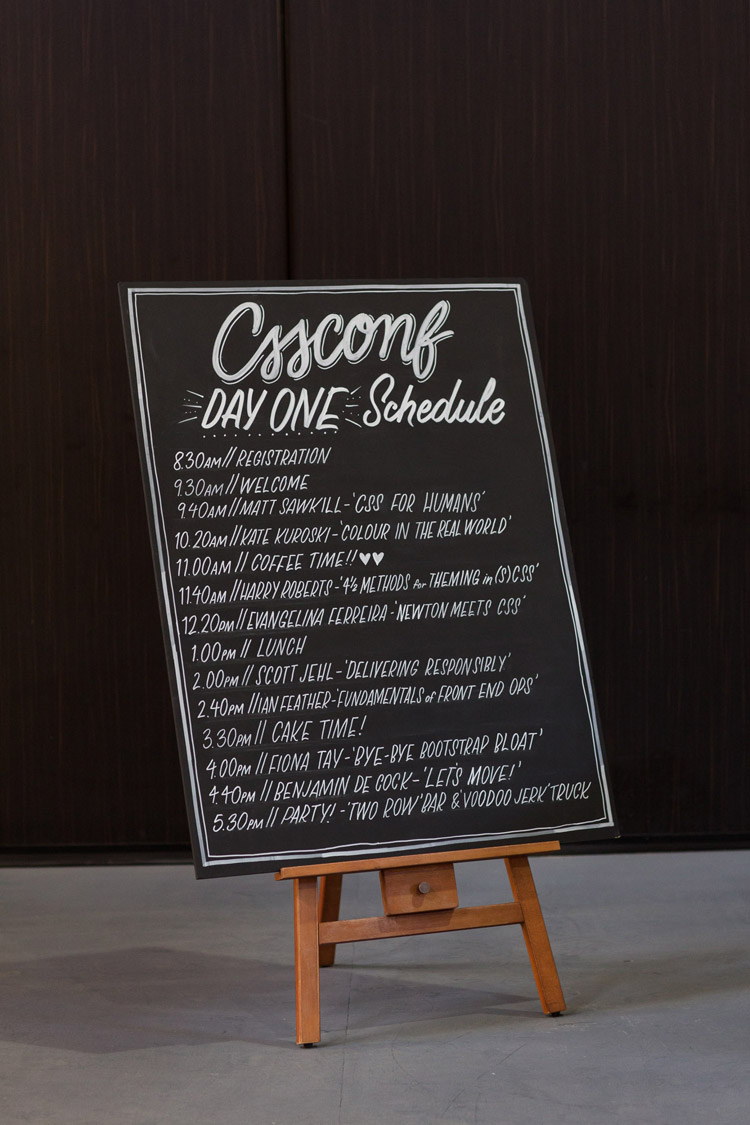 Cssconf
DAY ONE Schedule
8.30AM // REGISTRATION
9.30AM // WELCOME
9.40AM // MATT SAWKILL - 'CSS FOR HUMANS'
10.20AM // KATE KUROSKI - 'COLOUR IN THE REAL WORLD'
11.00AM // COFFEE TIME!! ♥♥
11.40AM // HARRY ROBERTS - '4½ METHODS for THEMING in (S)CSS'
12.20PM // EVANGELINA FERREIRA - 'NEWTON MEETS CSS'
1.00PM // LUNCH
2.00PM // SCOTT JEHL - 'DELIVERING RESPONSIBLY'
2.40PM // IAN FEATHER - 'FUNDAMENTALS of FRONT END OPS'
3.30PM // CAKE TIME!
4.00PM // FIONA TAY - 'BYE-BYE BOOTSTRAP BLOAT'
4.40PM // BENJAMIN DE COCK - 'LET'S MOVE!'
5.30PM // PARTY! - 'TWO ROW' BAR & 'VOODOO JERK' TRUCK